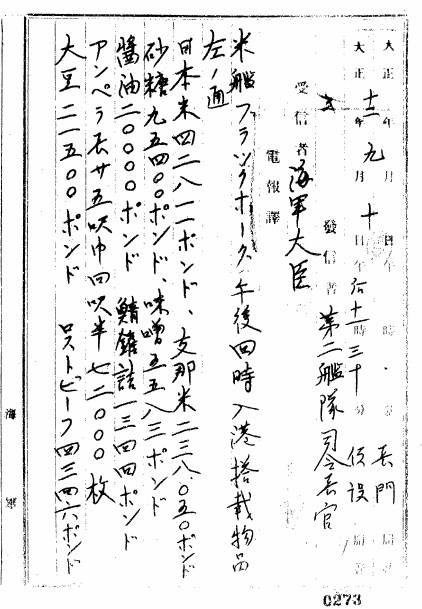 大正 年 月 日午 時 分 局發 長門
大正十二年九月十日午后十一時三十分 局著 假設
發信者 第二艦隊司令長官
受信者 海軍大臣
電報譯
米艦ブラックホーク午後四時入港搭載物品
左ノ通
日本米四二八一一ポンド、支那米二三八、〇五〇ポンド
砂糖九五四〇〇ポンド、味噌五五八三ポンド
醬油二〇〇〇〇ポンド 鯖鑵詰一三四四ポンド
アンペラ長サ五呎巾四呎半七二〇〇〇枚
大豆二一五〇〇ポンド ロストビーフ四三四六ポンド
海軍
0273